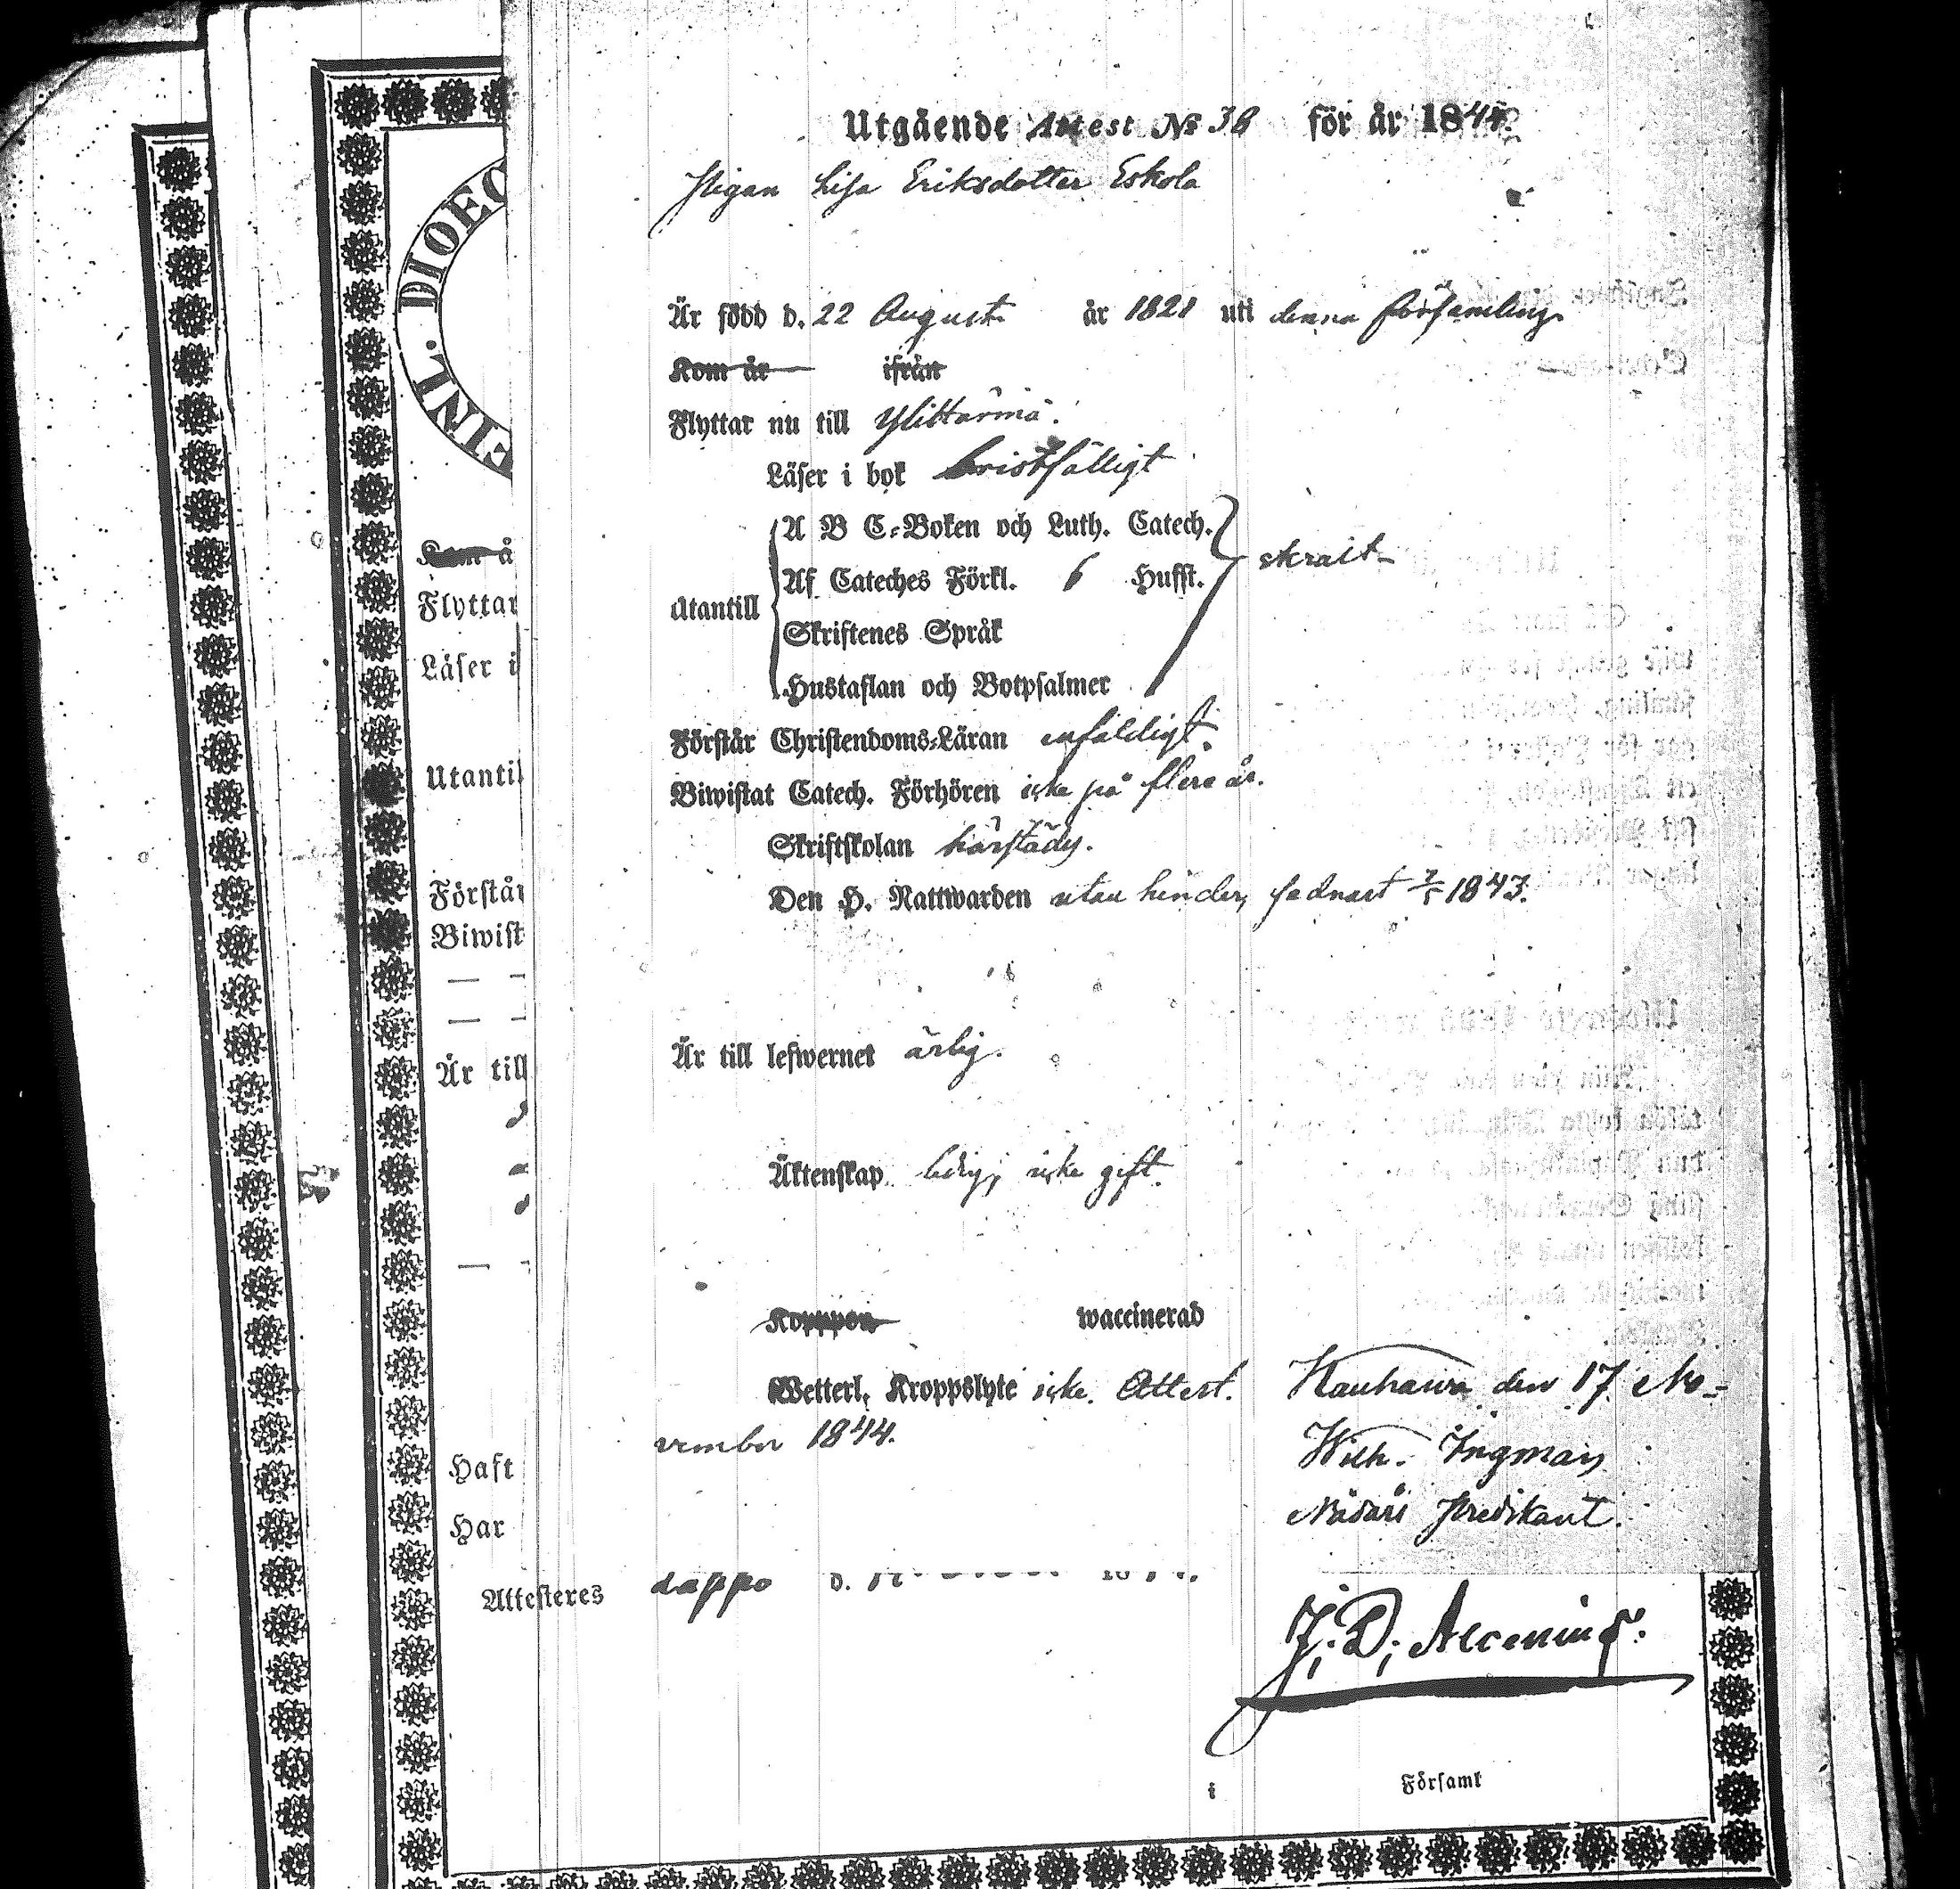 Utgående Attest № 38 för år 1844.
Pigan Lisa Eriksdotter Eskola
Är född d. 22 August år 1821 uti denna församling.
Kom år ifrån
Flyttar nu till Ylihärmä.
Läser i bok bristfälligt
A B C-Boken och Luth. Catech.
Af Cateches Förkl. 6 Hufst. skralt
Utantill
Skriftenes Språk
Hustaflan och Botpsalmer
Förstår Christendoms-Läran enfaldigt.
Biwistat Catech. Förhören icke på flere år.
Skriftskolan härstädes.
Den H. Nattwarden utan hinder, sednast 1843.
Är till lefwernet ärlig.
Äktenskap ledig, icke gift.
Koppor waccinerad
Wetterl. Kroppslyte icke. Attest. Kauhawa den 17. No-
vember 1844.
Wilh. Ingman
Nådårs Predikant.
DIOEC
FINL.
Kom å
Flyttar
Läser i
Utantil
Förstår
Biwist
Är till
Haft
Har
Attesteres Lappo d.
J. D. Alcenius.
i Församl